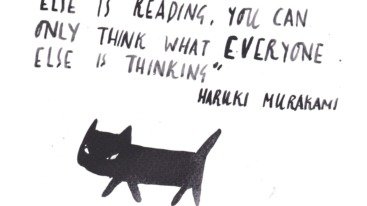 ELSE IS READING, YOU CAN
ONLY THINK WHAT EVERYONE
ELSE IS THINKING"
HARUKI MURAKAMI